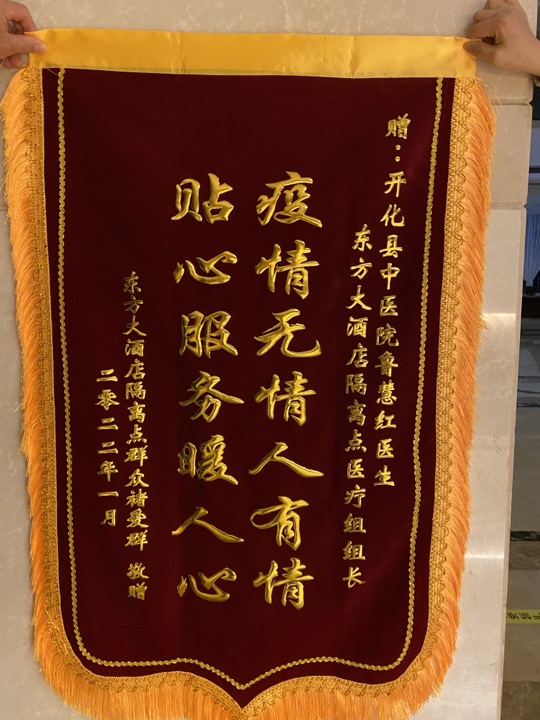 赠：开化县中医院鲁慧红医生
东方大酒店隔离点医疗组组长
疫情无情人有情
贴心服务暖人心
东方大酒店隔离点群众褚爱群 敬赠
二零二二年一月